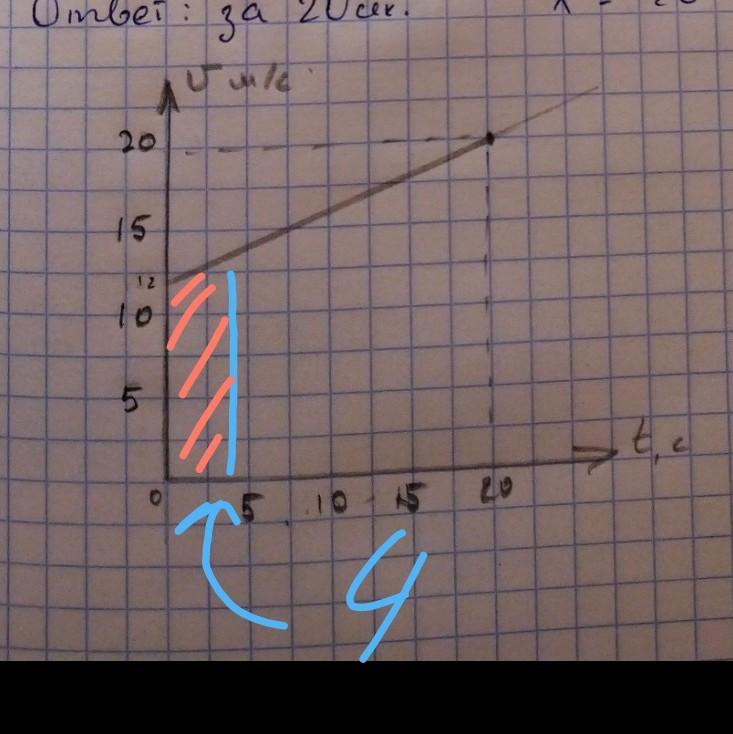 Ответ: за 20 сек.
v м/с
20
15
12
10
5
t, с
0 5 10 15 20
4